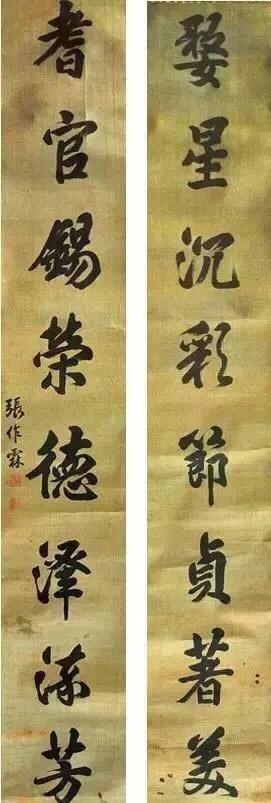 婺星沉彩節貞著美
耆官錫榮德澤流芳
張作霖